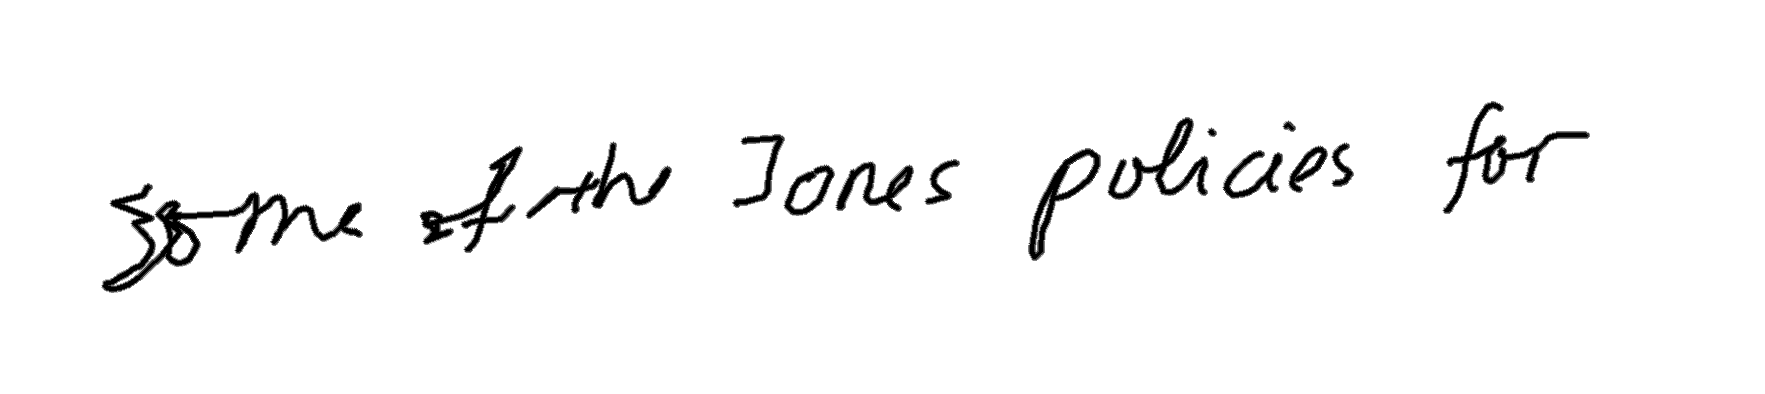 some of the Jones policies for